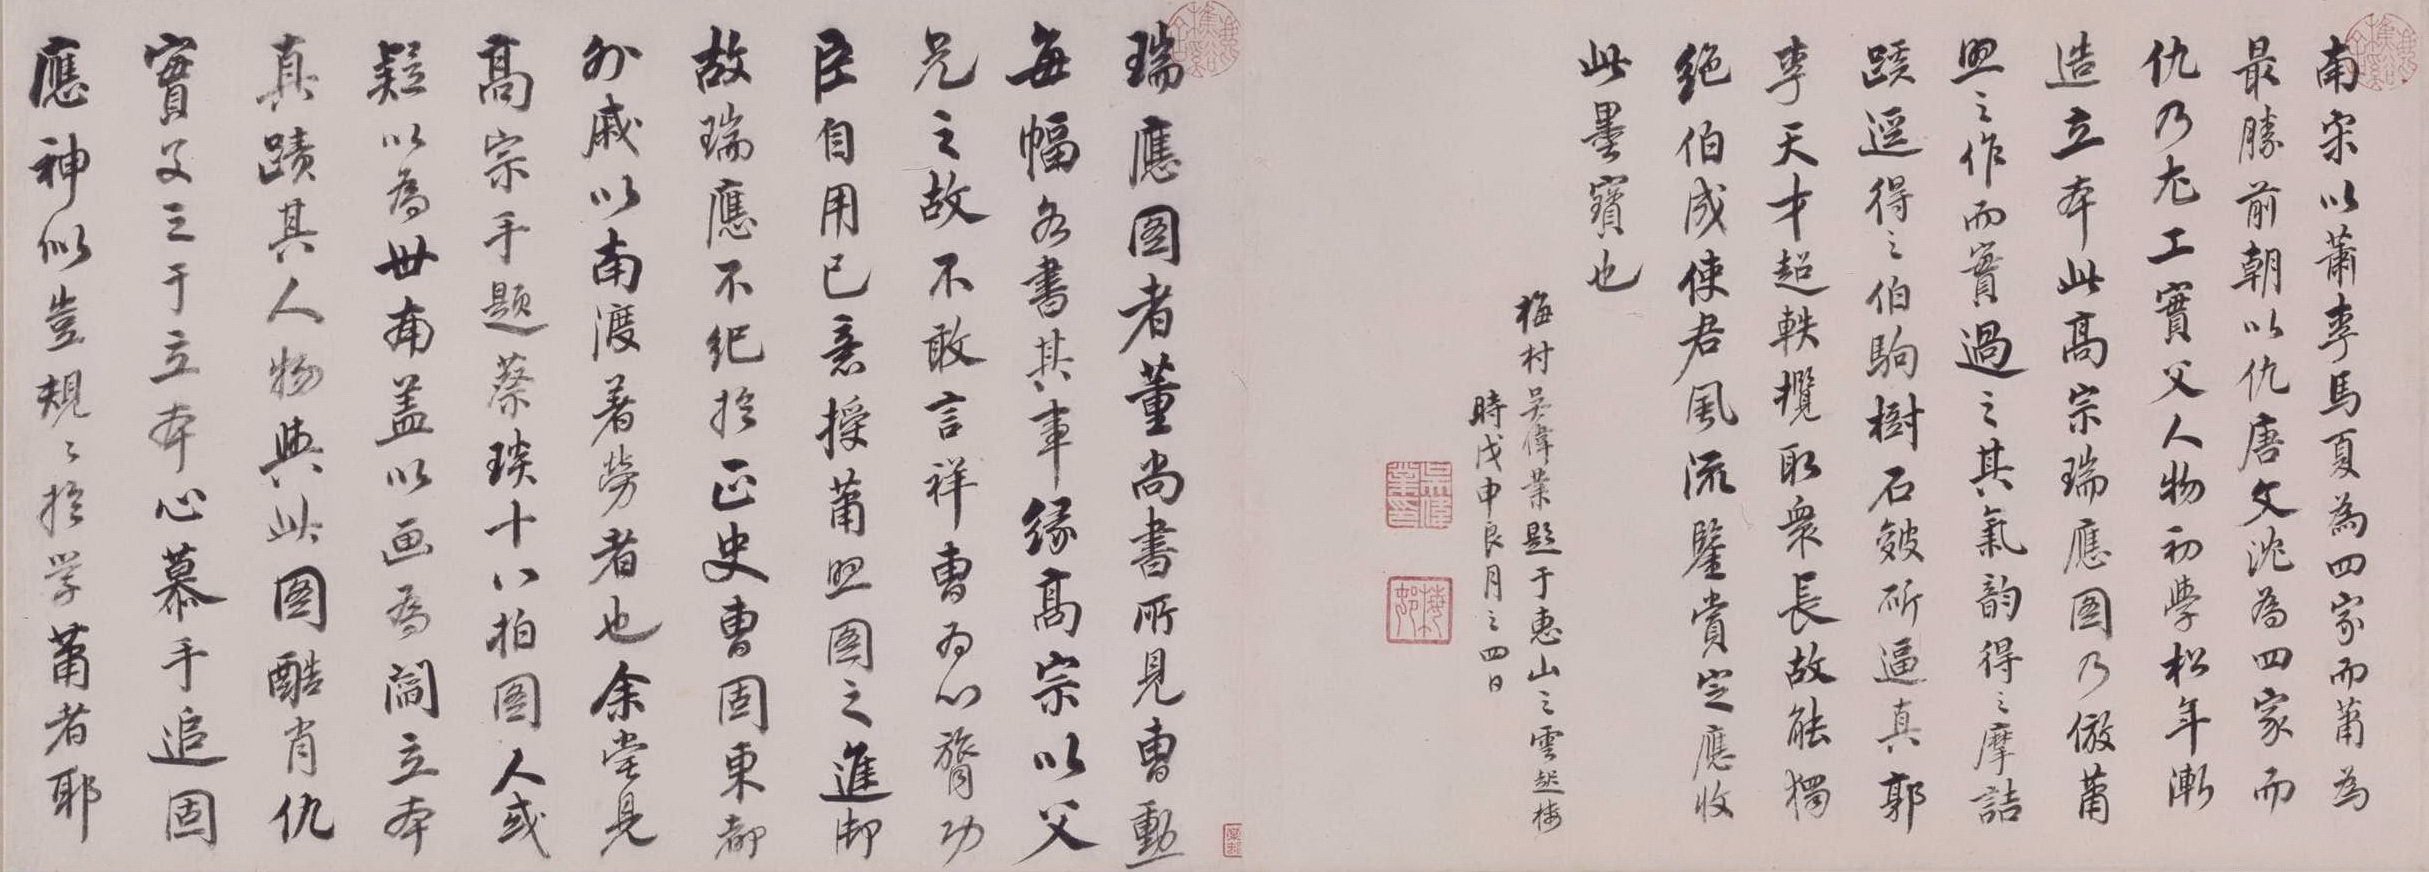 南宋以蕭李馬夏為四家而蕭為
最勝前朝以仇唐文沈為四家而
仇乃尤工實父人物初學松年漸
造立本此高宗瑞應图乃倣蕭
照之作而實過之其氣韵得之摩詰
蹊逕得之伯駒樹石皴斫逼真郭
李天才超軼攬取衆長故能獨
絕伯成使君風流鑒賞定應收
此墨寶也
梅村吳偉業題于惠山之雲起樓
時戊申良月之四日
吳偉業印
梅邨
瑞應图者董尚書所見曹勳
每幅各書其事緣高宗以父
兄之故不敢言祥曹為心膂功
臣自用己意授蕭照图之進御
故瑞應不紀於正史曹固東都
外戚以南渡著勞者也余嘗見
高宗手題蔡琰十八拍图人或
疑以為世南盖以画為閻立本
真蹟其人物與此图酷肖仇
實父三于立本心慕手追固
應神似豈規之於学蕭者耶